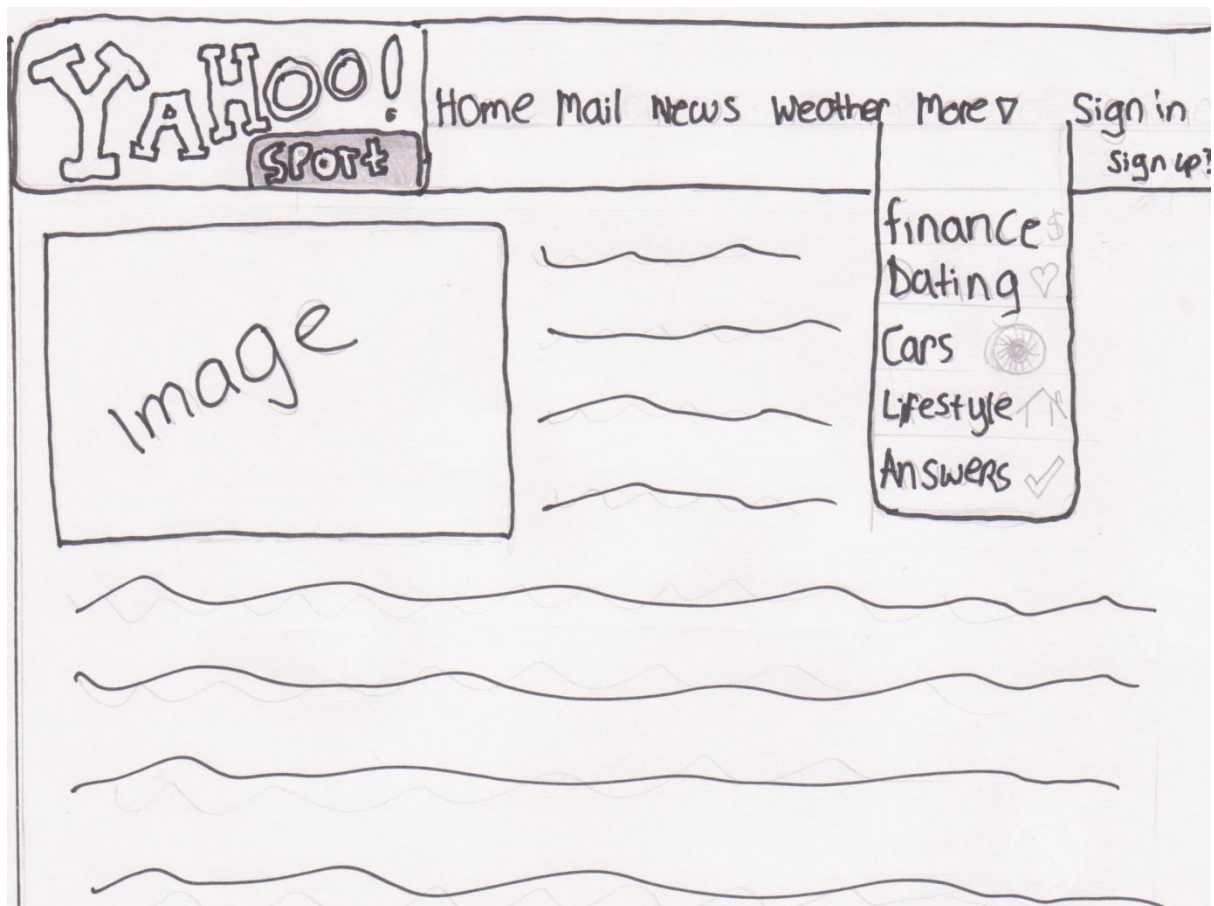 YAHOO!
SPORt
Home Mail News Weather More ▽ Sign in
Sign up?
finance $
Dating
Cars
Lifestyle
Answers
Image